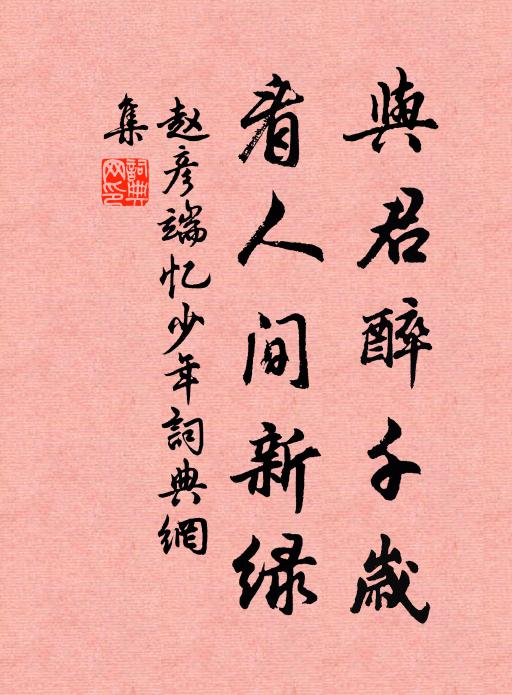 與君醉千歲
看人間新绿
赵彦端忆少年詞典網
集
詞典
网印